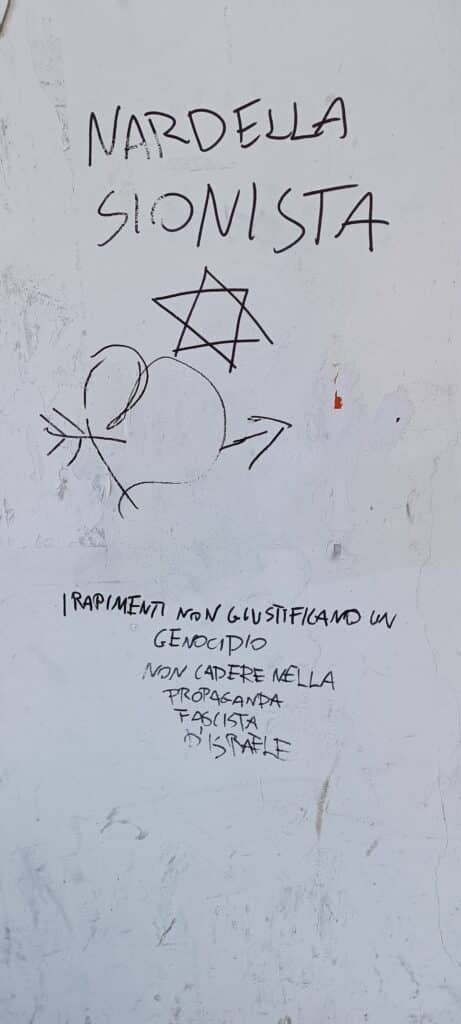 NARDELLA
SIONISTA
I RAPIMENTI NON GIUSTIFICANO UN
GENOCIDIO
NON CADERE NELLA
PROPAGANDA
FASCISTA
D'ISRAELE